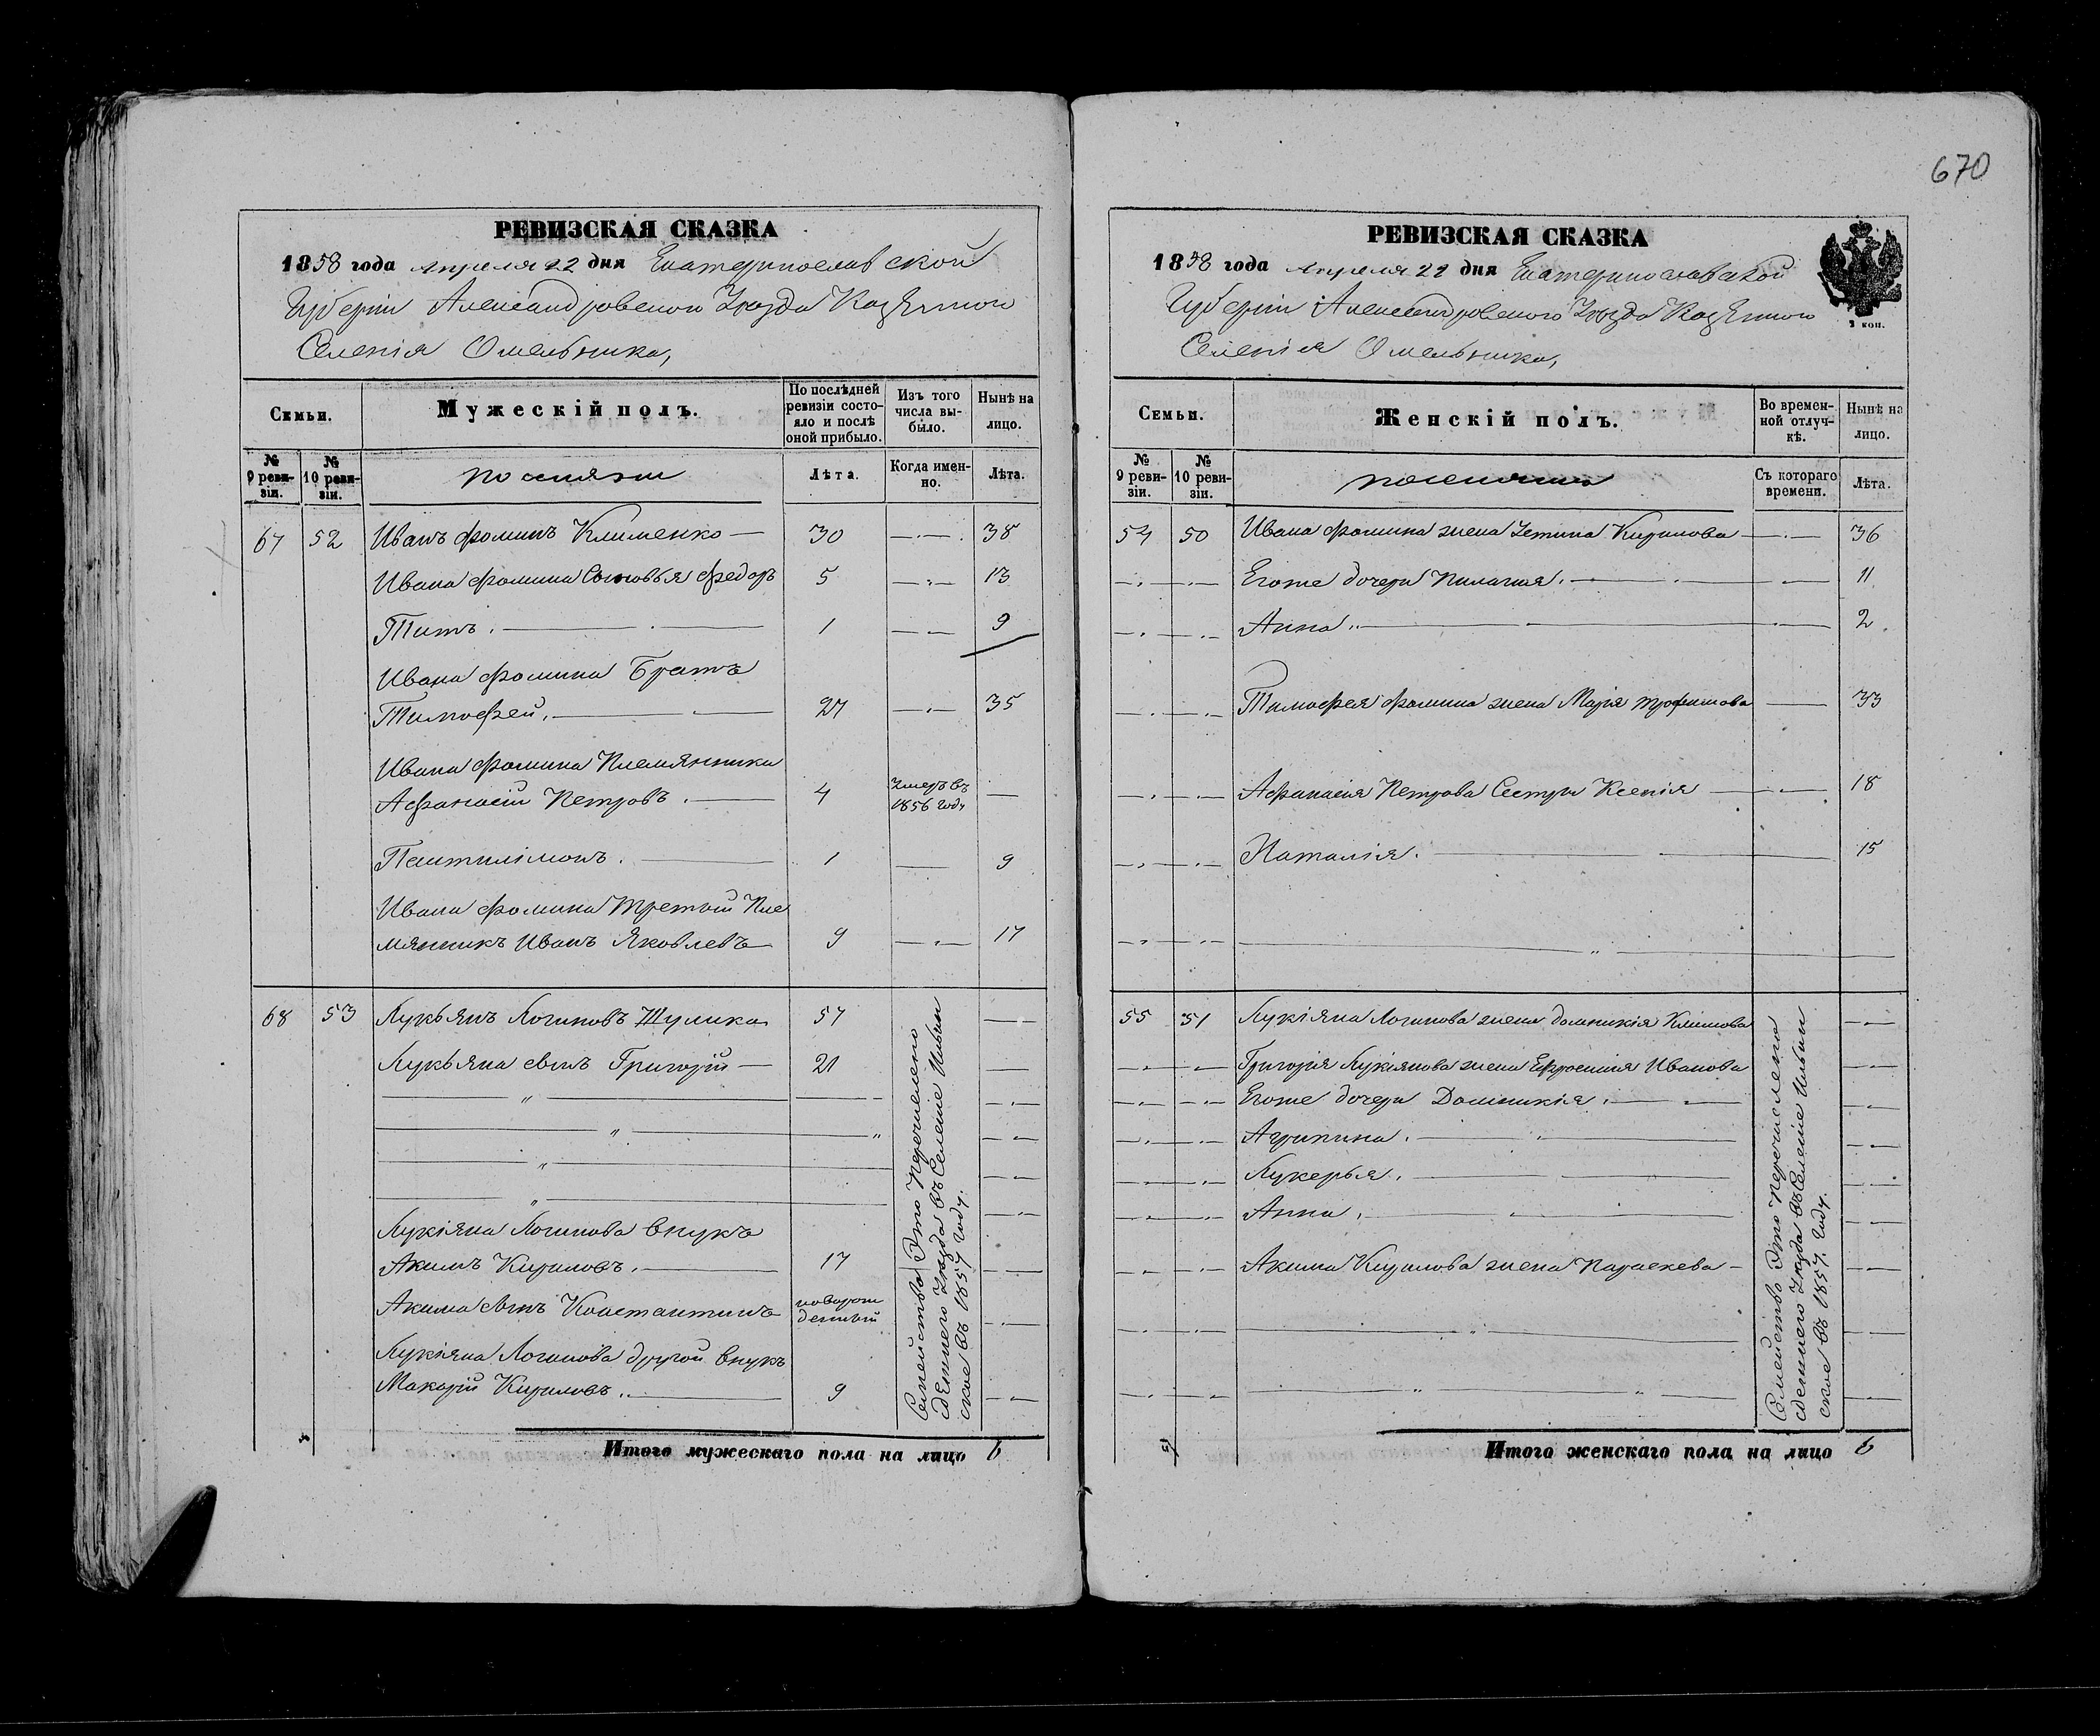 670
РЕВИЗСКАЯ СКАЗКА
1858 года Апреля 22 дня Екатеринославской
Губерніи Александровского Уѣзда Казенного
Селенія Омельника,
Семьи.
Мужескій полъ.
По послѣдней ревизіи состояло и послѣ оной прибыло.
Изъ того числа выбыло.
Нынѣ на лицо.
№ 9 ревизіи.
№ 10 ревизіи.
Лѣта.
Когда именно.
Лѣта.
67 52 Иванъ Фоминъ Клименко — 30 — 38
Ивана Фомина Сыновья Федоръ 5 — 13
Титъ. 1 — 9
Ивана Фомина Братъ
Тимофей. 27 — 35
Ивана Фомина Племянники
Афанасій Петровъ. 4 Умеръ въ 1856 году —
Пантилімонъ. 1 — 9
Ивана Фомина Третьій Пле
мянникъ Иванъ Яковлевъ 9 — 17
68 53 Лукьянъ Логиновъ Шулика 57 —
Лукьяна сынъ Григорій — 21 —
Лукіяна Логинова внукъ
Акимъ Кириловъ. 17 —
Акима сынъ Константинъ новорож денный —
Лукіяна Логинова другой внукъ
Макарій Кириловъ.. 9 —
Семейство Это перечислено
сдешнего Уезда въ Селение Ильин
ское въ 1857 году.
Итого мужескаго пола на лицо 6
РЕВИЗСКАЯ СКАЗКА
1858 года Апреля 22 дня Екатеринославской
Губерніи Александровского Уѣзда Казенного
Селенія Омельника,
2 коп.
Семьи.
Женскій полъ.
Во временной отлучкѣ.
Нынѣ на лицо.
№ 9 ревизіи.
№ 10 ревизіи.
Съ котораго времени.
Лѣта.
54 50 Ивана Фомина жена Устина Кирилова — 36
Егоже дочери Пилагия. — 11
Анна.. — 2
Тимофея Фомина жена Марія Трофимова — 33
Афанасія Петрова Сестры Ксенія — 18
Наталія. — 15
55 51 Лукіяна Логинова жена Домникія Климова —
Григорія Лукіянова жена Ефросинія Иванова —
Егоже дочери Домникія. —
Агрипина. —
Лукерья. —
Анна. —
Акима Кирилова жена Параскева —
Семейство Это перечислено
сдешнего Уезда въ Селеніе Ильин
ское въ 1857. году.
Итого женскаго пола на лицо 6